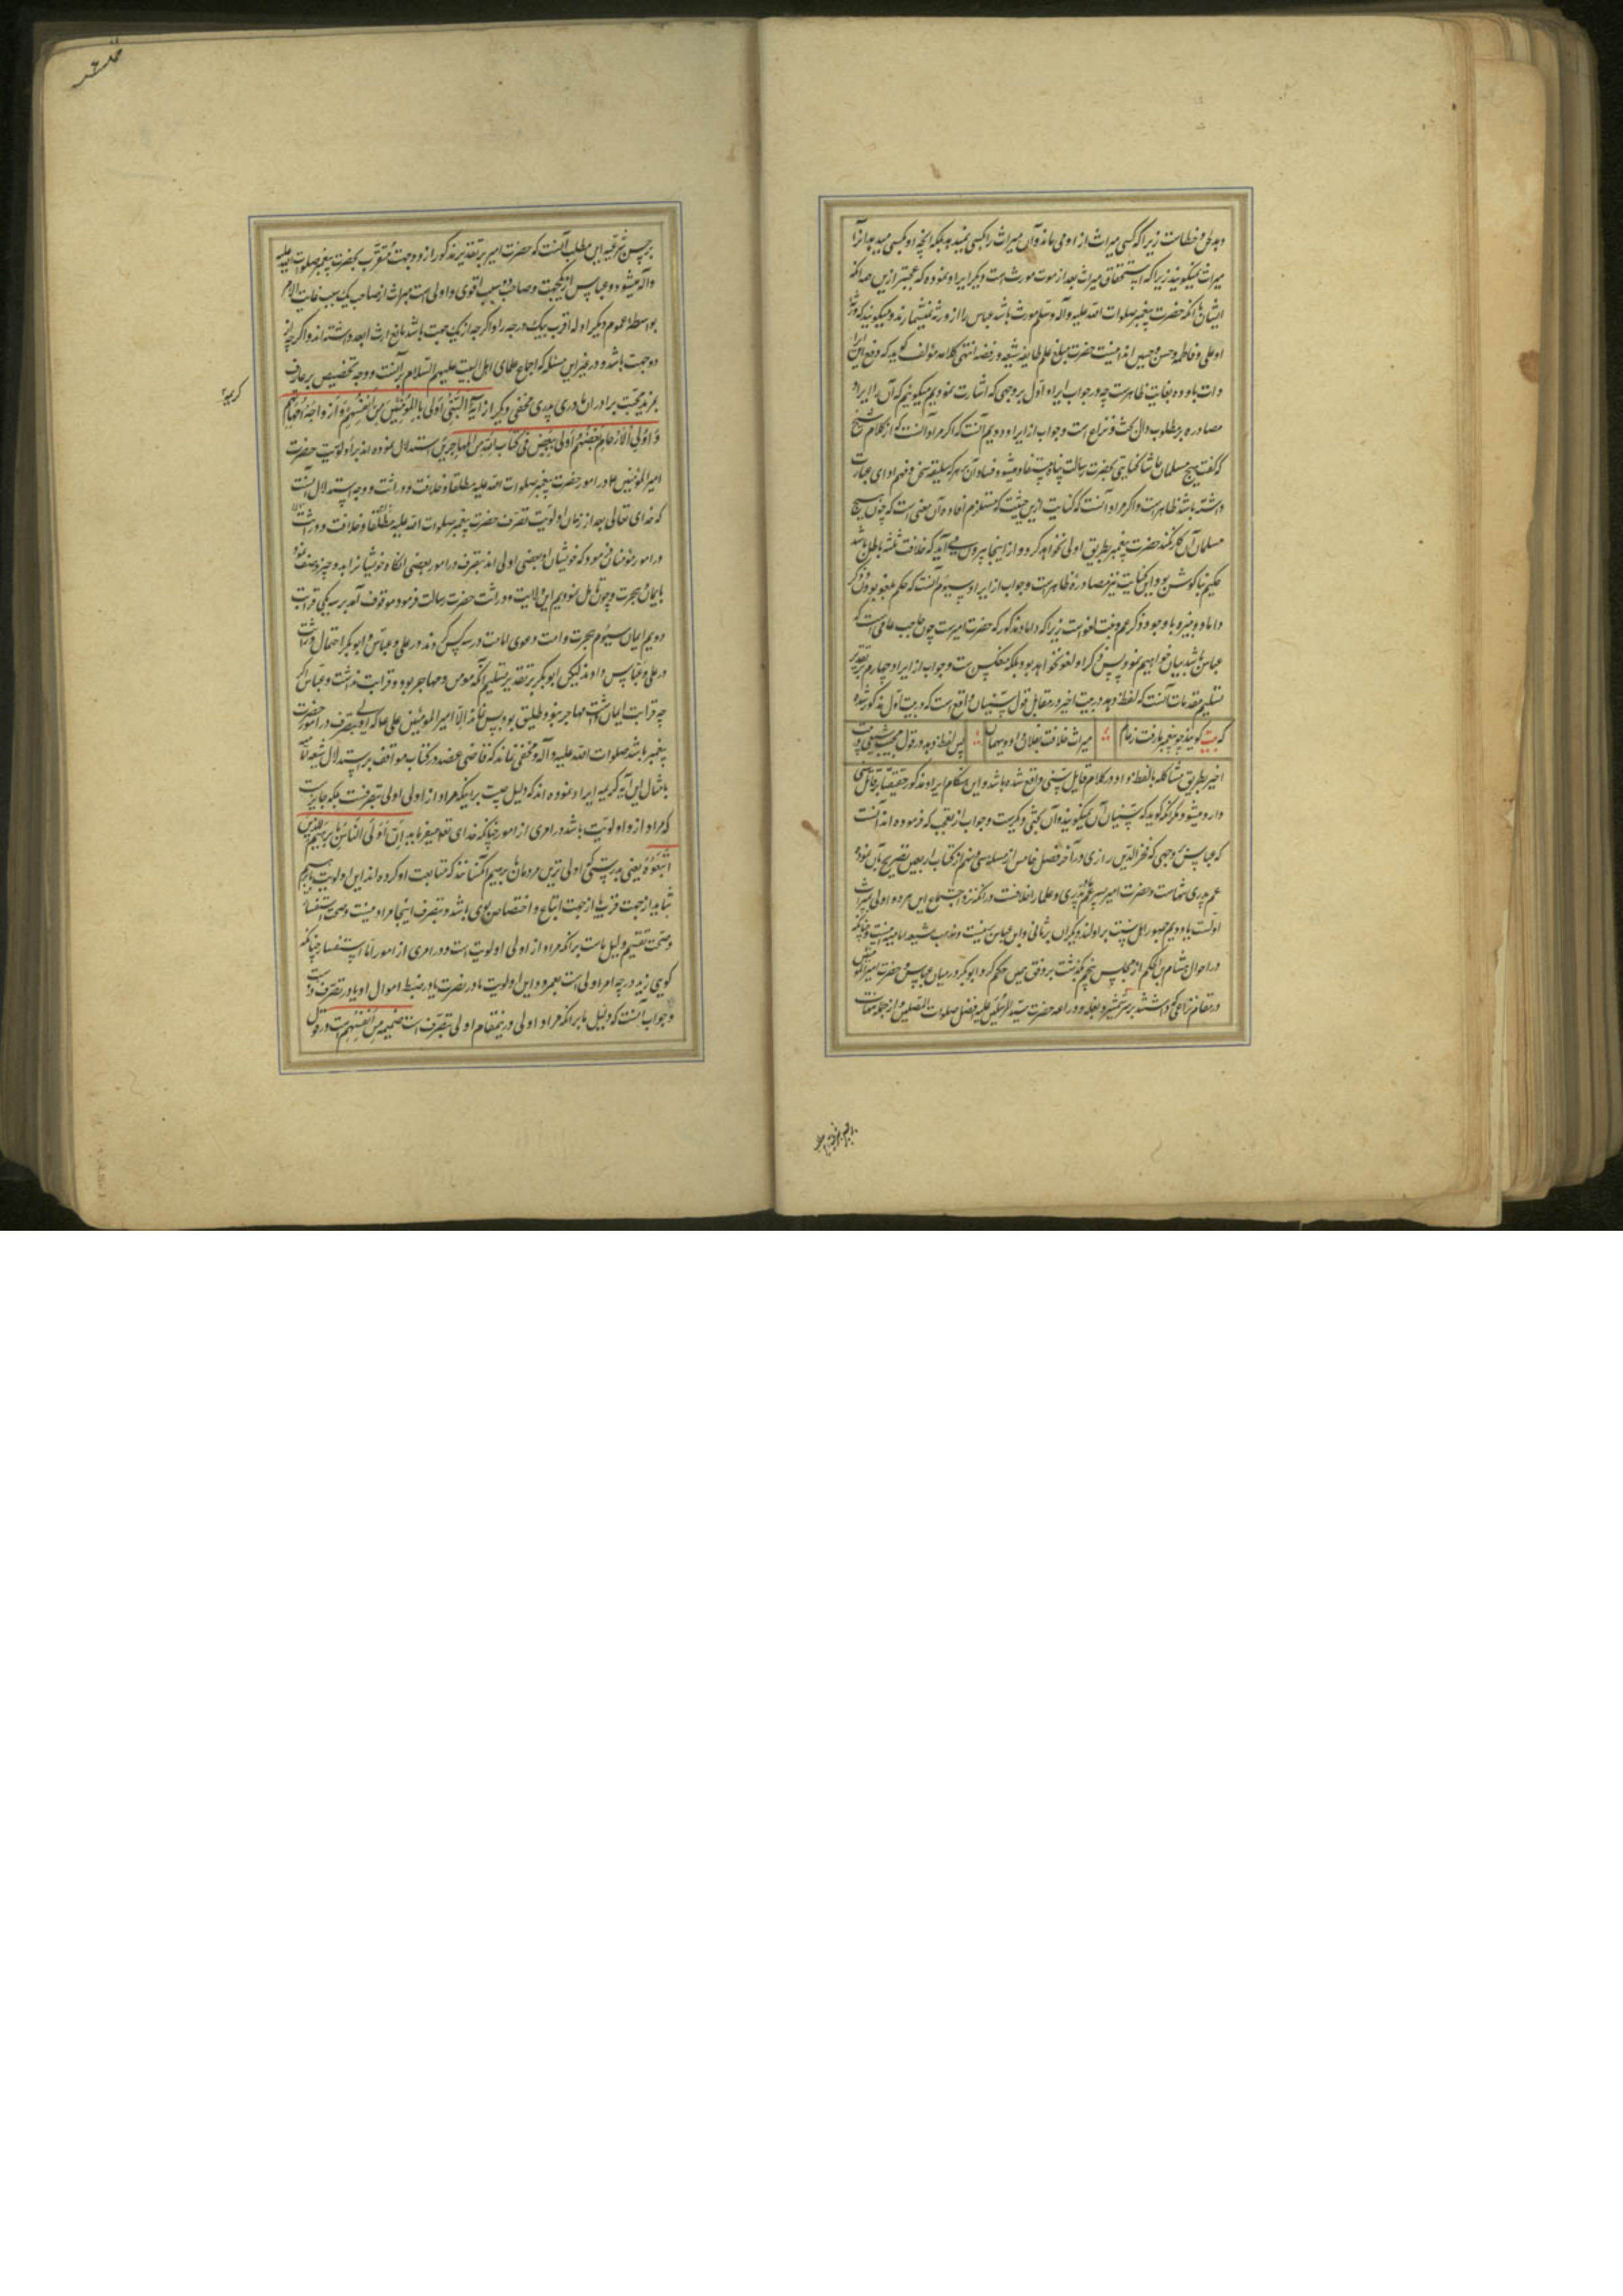 دهد غلط و خطاست زیرا که کسی میراث از او می‌ماند و آن میراث را کسی نمیدهد بلکه آنچه او بکسی میدهد آنرا
میراث نمیگویند زیرا که استحقاق میراث بعد از موت مورث است و دیگر ایراد نموده که عجبتر از این همه آنکه
ایشان با آنکه حضرت پیغمبر صلوات الله علیه وآله وسلم مورث باشد عباس را از ورثه نمیشمارند و میگویند که ورثه
او علی و فاطمه و حسن و حسین اند اینست حضرت مبلغ علم طایفه شیعه و رفضه انتهی کلامه مؤلف گوید که دفع این
مصادره بر مطلوب و آن بحث و نزاع است و جواب از ایراد دویم آنست که اگر مراد آنست که از کلام شیخ
که گفت هیچ مسلمان حاشا کنایتی بحضرت رسالت پناه مستفاد میشود فساد آن بر هر که سلیقه سخن و فهم ادای عبارت
داشته باشد ظاهر است و اگر مراد آنست که کنایت ازین حیثیت که مستلزم افاده آن معنی است که چون هیچ
مسلمان آن کار نکند حضرت پیغمبر بطریق اولی نخواهد کرد و از اینجا بیرون می آید که خلافت ثلثه باطل باشد
حکیم بناگوش بود این کنایت نیز مصادره ظاهر است و جواب از ایراد سیوم آنست که حکم بلغو بودن ذکر
داماد و غیره با وجود ذکر عم و بنت لغو است زیرا که داماد مذکور که حضرت امیر است چون حاجب عامی است که
عباس باشد بیان خواهیم نمود پس ذکر او لغو نخواهد بود بلکه بعکس است و جواب از ایراد چهارم بر تقدیر
تسلیم مقدمات آنست که لفظ دهد در بیت اخیر در مقابل قول سنیان واقع است که در بیت اول مذکور شده
که بیت گویند چو پیغمبر ما رفت ز عالم ∴ میراث خلافت بفلان داد و بهمان ∴ پس لفظ دهد در قول مجیب شیعی در بیت
اخیر بطریق مشاکله با لفظ داد در کلام قایل سنی واقع شده باشد و این هنگام ایراد مذکور حقیقتا بر قایل سنی
وارد میشود مگر آنکه گوید که سنیان آن نمیگویند و آن بحثی دیگر است و جواب از تعجب که فرموده اند آنست
که عباس بوجهی که فخر الدین رازی در آخر فصل خامس از مسئله سی و نهم از کتاب اربعین تصریح بآن نموده
عم پدری تنهاست و حضرت امیر پسر عم مادر پدری و علما را خلافست در آنکه نزد اجتماع این هر دو اولی بمیراث
اولست یا دویم جمهور اهل سنت بر اولند و دیگران بر ثانی و ابن عباس ازینست و مذهب شیعه امامیه اینست و چنانکه
در احوال هشام بن الحکم از مجلس پنجم گذشت بر وفق همین حکم کرد ابوبکر در میان عباس و حضرت امیر المؤمنین
در مقام نزاعی که داشتند بر سر شمشیر و بغله و دراعه حضرت سید المرسلین علیه افضل صلوات المصلین و از جمله مهمات
بر چنین شرعیه این مطلب آنست که حضرت امیر بر تقدیر مذکور از دو جهت متقرب بحضرت پیغمبر صلوات الله علیه
وآله میشود و عباس از یکجهت و صاحب دو سبب اقوی و اولی است بمیراث از صاحب یک سبب غایت الامر
بواسطه عموم دیگر اوله اقرب بیک درجه را و اگر چه از یک جهت باشد مانع ارث ابعد داشته اند و اگر چه از
دو جهت باشد و در غیر این مسئله که اجماع علمای اهل البیت علیهم السلام بر آنست و وجه تخصیص بر عارف
بمزید محبت برادران مادری پدری مخفی دیگر از آیه النَّبِیُّ أَوْلَى بِالْمُؤْمِنِينَ مِنْ أَنْفُسِهِمْ وَأَزْوَاجُهُ أُمَّهَاتُهُمْ
وَأُولُو الْأَرْحَامِ بَعْضُهُمْ أَوْلَى بِبَعْضٍ فِی كِتَابِ اللَّهِ مِنَ المُهَاجِرِینَ استدلال نموده اند بر اولویت حضرت
امیر المؤمنین علی در امور حضرت پیغمبر صلوات الله علیه مطلقا و خلافت و وراثت و وجه استدلال آنست
که خدای تعالی بعد از زمان اولویت تصرف حضرت پیغمبر صلوات الله علیه مطلقا و خلافت و وراثت
در امور مؤمنان فرمود که خویشان او بعضی اولی اند بتصرف در امور بعضی آنگاه خویشانرا بدو چیز وصف نمود
بایمان و هجرت و چون تأمل نمودیم این ولایت و وراثت حضرت رسالت فرمود موقوف آمد بر سه یکی قرابت
دویم ایمان سیوم هجرت و امت دعوی امامت در سه کس کردند در علی و عباس و ابوبکر احتمال وراثت
در علی و عباس دادند لیکن ابوبکر بر تقدیر تسلیم آنکه مومن و مهاجر بود و قرابت نداشت و عباس اگر
چه قرابت ایمان داشت مهاجر نبود و طلیق بود پس نماند الّا امیر المؤمنین علی عا که اولی بتصرف در امور حضرت
پیغمبر باشد صلوات الله علیه وآله و مخفی نماند که قاضی عضد در کتاب مواقف بر استدلال شیعه امامیه
بامثال این آیه کریمه ایراد نموده اند که دلیل چیست بر اینکه مراد از اولی اولی بتصرفست بلکه جایز است
که مراد از و اولویت باشد در امری از امور چنانکه خدای تعالی میفرماید إِنَّ أَوْلَى النَّاسِ بِإِبْرَاهِيمَ لَلَّذِينَ
اتَّبَعُوهُ یعنی بدرستی که اولی ترین مردمان بابرهیم آنکسانند که متابعت او کرده اند این اولویت بابرهیم
شاید از جهت قرب یا از جهت اتباع و اختصاص بوی باشد و تصرف اینجا مراد نیست و صحت استفسار
و صحت تقسیم دلیل ماست بر آنکه مراد از اولی اولویت است و در امری از امور اما استفسار چنانکه
گویی زید در چه امر اولی است بعمرو و این اولویت یا در نصرت یا در ضبط اموال او یا در تصرف در وست
و جواب آنست که دلیل ما بر آنکه مراد او اولی در ینمقام اولی بتصرف است ضمیمه من انفسهم است در قول
کریمه